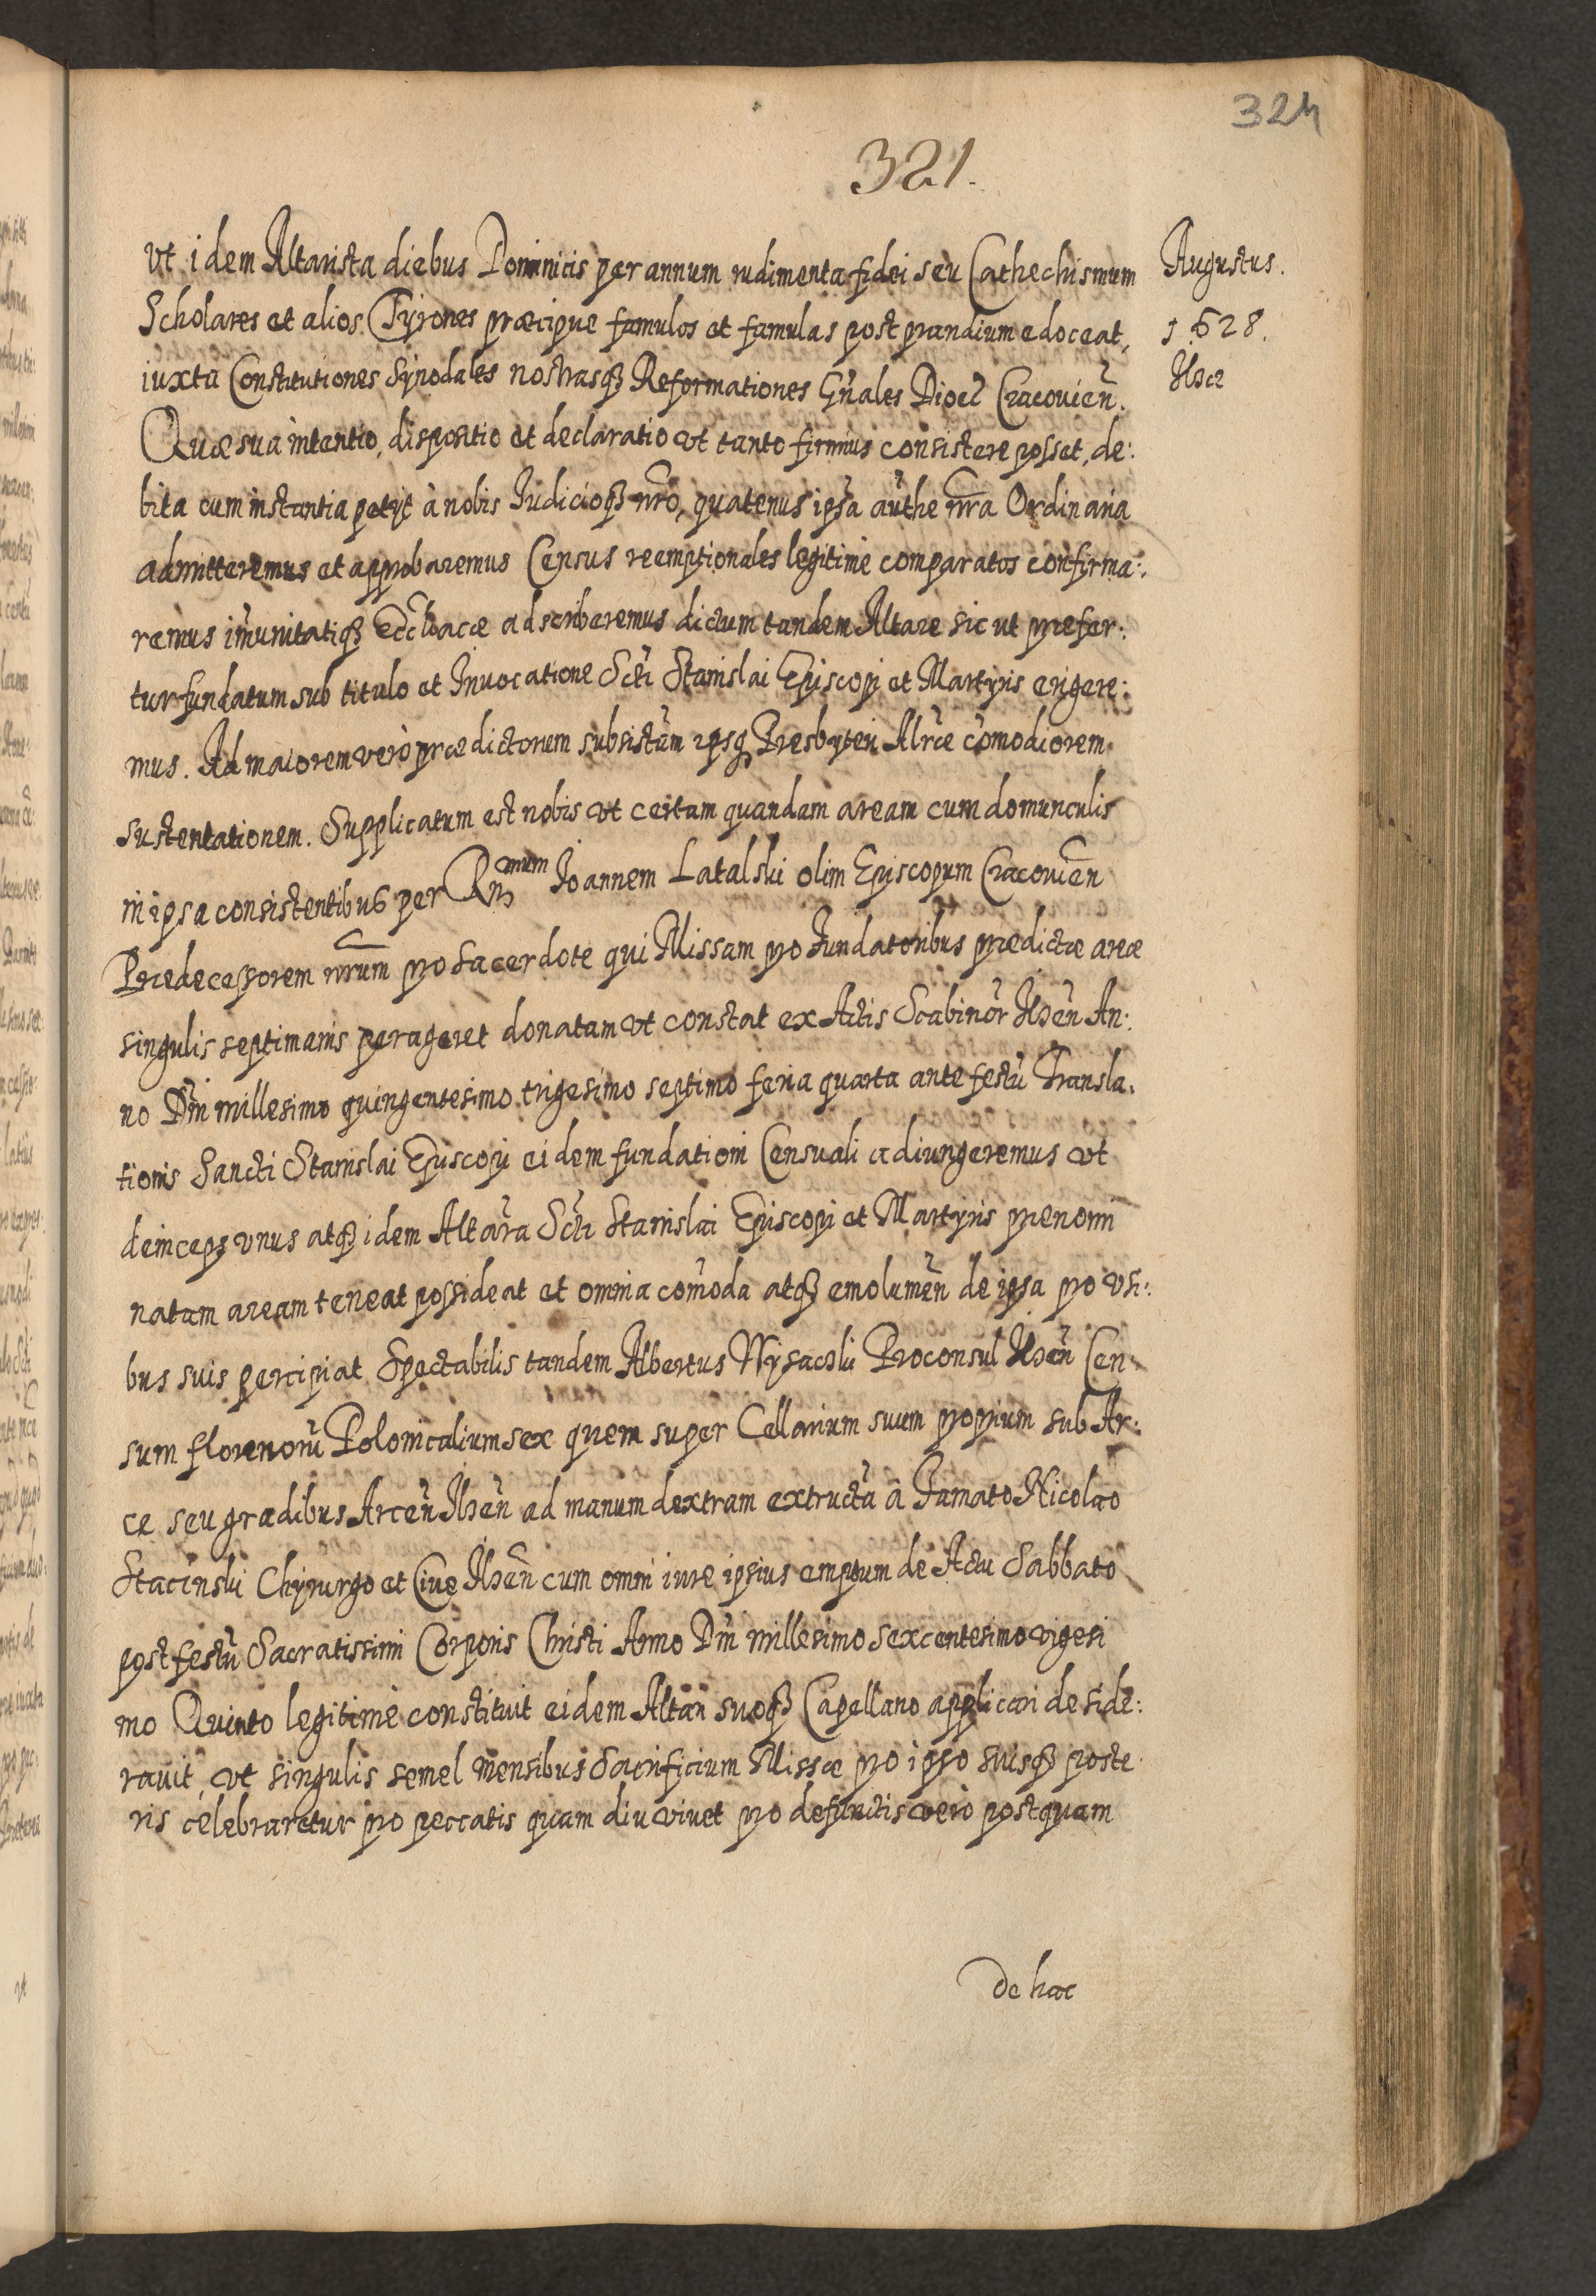 324
321.
Augustus.
1628.
Ilzae
Vt idem Altarista diebus Dominicis per annum rudimenta fidei seu Cathechismum
Scholares et alios Tyrones præcipue famulos et famulas post prandium edoceat,
iuxta Constitutiones Synodales nostrasq₃ Reformationes Gnales Dioec Cracovien.
Quæ sua intentio, dispositio et declaratio vt tanto firmius consistere posset, de:
bita cum instantia petyt à nobis Iudicioq₃ nro, quatenus ipsa authe nra Ordinaria
admitteremus et approbaremus Census reemptionales legitime comparatos confirma:
remus imunitatiq₃ Eccl̃iacæ adscriberemus dictum tandem Altare sic ut præfer:
tur fundatum sub titulo et Inuocatione Scti Stanislai Episcopi et Martyris erigere:
mus. Ad maiorem verò prædictorum subsistam ipsq₃ Presbyteri Alrtæ comodiorem
sustentationem. Supplicatum est nobis vt certam quandam aream cum domunculis
in ipsa consistentibus per Rnd̃mum Ioannem Latalski olim Episcopum Cracovien
Prædecessorem nrum pro sacerdote qui Missam pro Fundatoribus prædictæ areæ
singulis septimanis perageret donatam vt constat ex Actis Scabinor Ilzen An:
no Dni millesimo quingentesimo trigesimo septimo feria quarta ante festũ Transla:
tionis Sancti Stanislai Episcopi eidem fundationi Censuali adiungeremus vt
deinceps vnus atq₃ idem Altara Scti Stanislai Episcopi et Martyris prenomi
natam aream teneat possideat et omnia comoda atq₃ emolumen de ipsa pro vsi:
bus suis percipiat. Spectabilis tandem Albertus Wysaczki Proconsul Ilzen Cen
sum florenorũ Polonicalium sex quem super Cellarium suum proprium sub Ar:
ce seu gradibus Arcen Ilzen ad manum dextram extructũ à Famato Nicolao
Stacinski Chyrurgo et Ciue Ilzen cum omni iure ipsius emptum de Actu Sabbato
post festũ Sacratissimi Corporis Christi Anno Dni millesimo sexcentesimo vigesi
mo Quinto legitimè constituit eidem Altari suoq₃ Capellano applicari deside:
rauit, vt singulis semel mensibus Sacrificium Missæ pro ipso suisq₃ poste
ris celebraretur pro peccatis quam diu viuet pro defunctis verò postquam
De hac